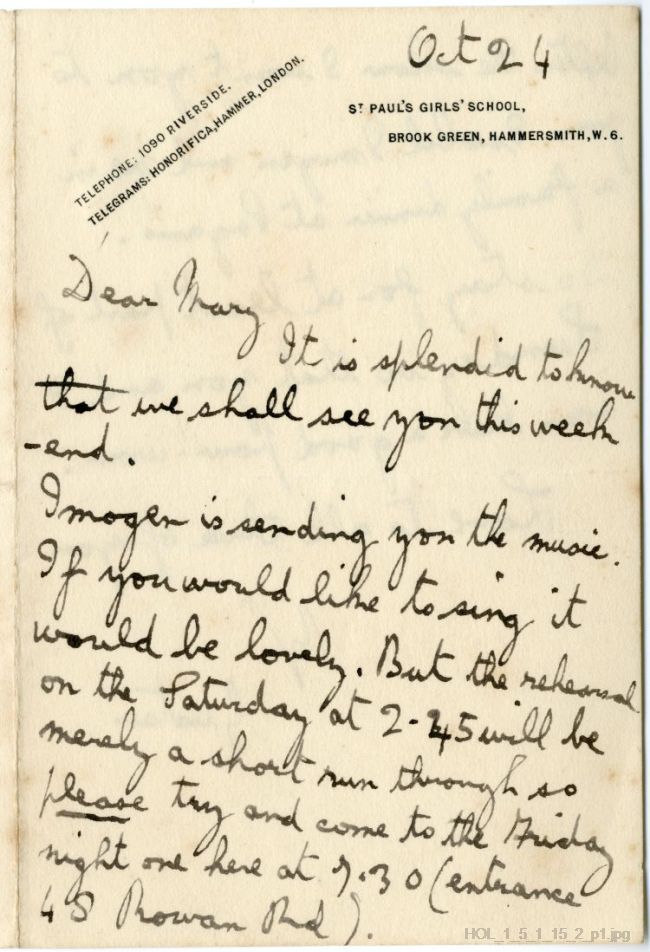 Oct 24
TELEPHONE: 1090 RIVERSIDE.
TELEGRAMS: HONORIFICA, HAMMER, LONDON.
ST PAUL'S GIRLS' SCHOOL,
BROOK GREEN, HAMMERSMITH, W. 6.
Dear Mary
It is splendid to know
that we shall see you this week
-end.
Imogen is sending you the music.
If you would like to sing it
would be lovely. But the rehearsal
on the Saturday at 2-45 will be
merely a short run through so
please try and come to the Friday
night one here at 7.30 (entrance
48 Rowan Rd).
HOL_1_5_1_15_2_p1.jpg